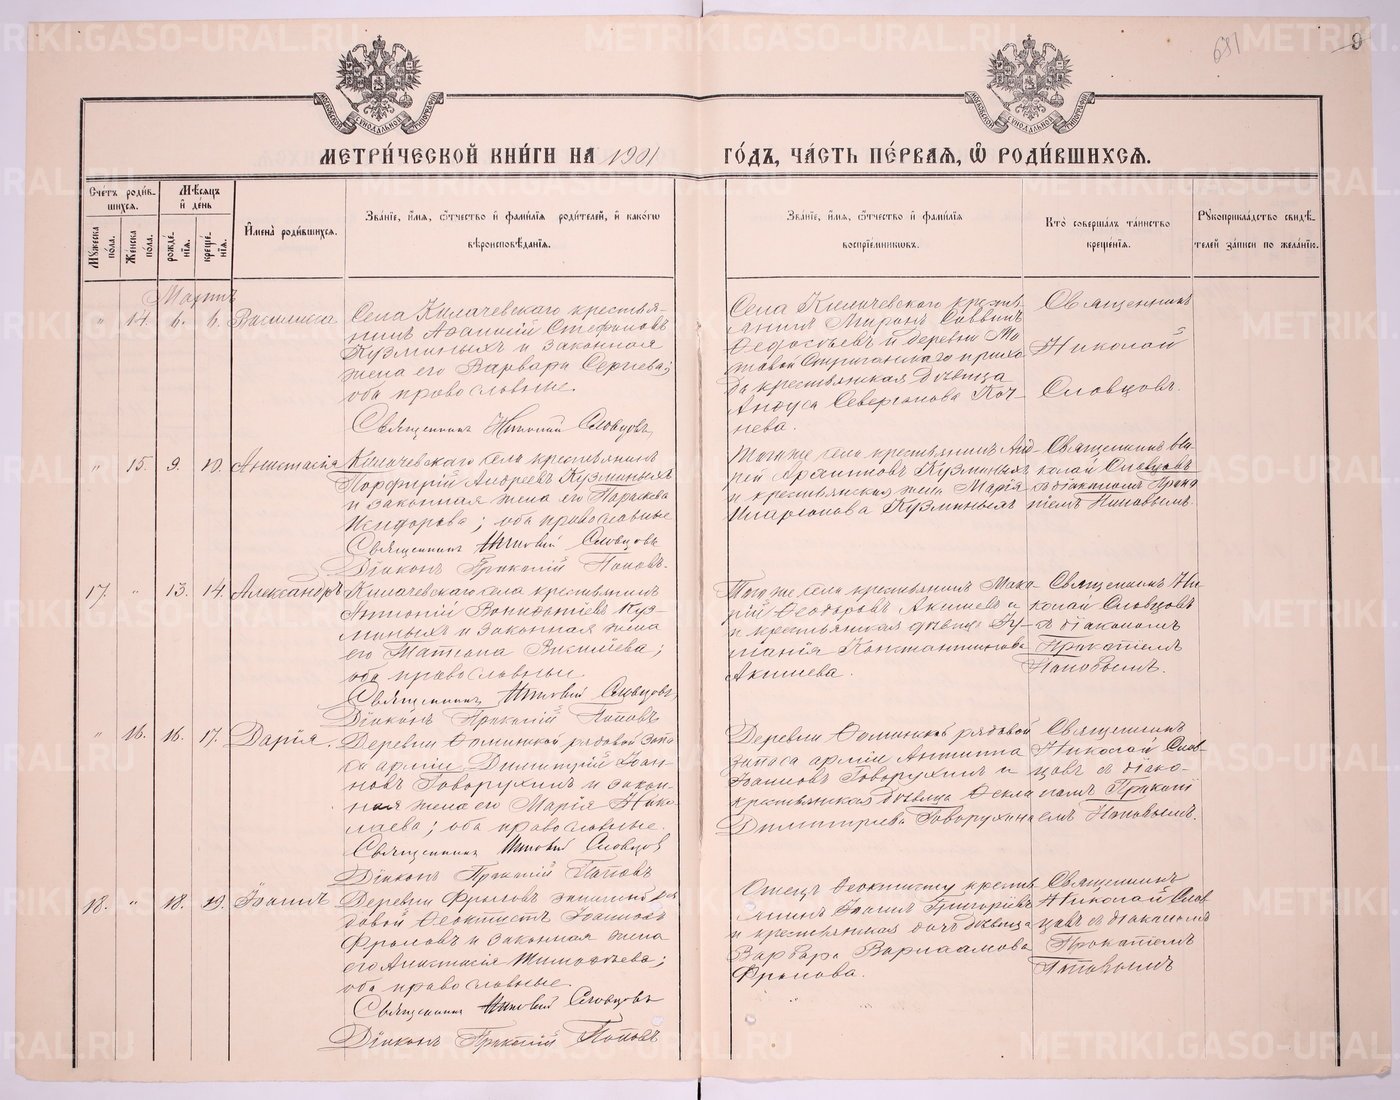 681
9
МЕТРИ́ЧЕСКОЙ КНИ́ГИ НА 1901 ГО́ДЪ, ЧА́СТЬ ПЕ́РВАЯ, Ѡ҆ РОДИ́ВШИХСЯ.
Сче́тъ роди́вшихся.
Му́жеска по́ла.
Же́нска по́ла.
Мѣ́сяцъ и҆ де́нь
рожде́нія.
креще́нія.
И҆мена̀ роди́вшихся.
Зва́ніе, и҆́мя, ѻ҆́тчество и҆ фами́лія роди́телей, и҆ како́гѡ
вѣроисповѣ́данія.
Зва́ніе, и҆́мя, ѻ҆́тчество и҆ фами́лія
воспріе́мниковъ.
Кто̀ соверша́лъ та́инство
креще́нія.
Рꙋкоприкла́дство свидѣ́телей за́писи по жела́нію.
Мартъ
" 14. 6. 6. Василисса
Села Килачевскаго крестья-
нинъ Афанасій Стефановъ
Кузминыхъ и законная
жена его Варвара Сергіева;
оба православные.
Священникъ Николай Словцовъ
Села Килачевскаго кресть-
янинъ Миронъ Саввинъ
Ѳедосѣевъ и деревни Мо-
стовой Стриганскаго прихо-
да крестьянская дѣвица
Анфуса Северіанова Коч-
нева.
Священникъ
Николай
Словцовъ.
" 15. 9. 10. Анастасія
Килачевскаго села крестьянинъ
Порфирій Андреевъ Кузминыхъ
и законная жена его Параскева
Никифорова; оба православные
Священникъ Николай Словцовъ
Діаконъ Прокопій Поповъ.
Того же села крестьянинъ
Кузминыхъ
и крестьянская жена Марія
Иларіонова Кузминыхъ
Священникъ Ни-
колай Словцовъ
съ діакономъ Проко-
піемъ Поповымъ.
17. " 13. 14. Александръ
Килачевскаго села крестьянинъ
Антоній Куз-
миныхъ и законная жена
его Матрона Васильева;
оба православные
Священникъ Николай Словцовъ
Діаконъ Прокопій Поповъ
Того же села крестьянинъ Мака-
рій Ѳеодоровъ Акишевъ
и крестьянская дѣвица Іу-
ліанія Константинова
Акишева.
Священникъ Ни-
колай Словцовъ
съ діакономъ
Прокопіемъ
Поповымъ.
" 16. 16. 17. Дарія.
Деревни Ѳоминской рядовой запа-
са арміи Димитрій Іоан-
новъ Говорухинъ и закон-
ная жена его Марія Нико-
лаева; оба православные.
Священникъ Николай Словцовъ
Діаконъ Прокопій Поповъ
Деревни Ѳоминской рядовой
запаса арміи Антипа
Іоанновъ Говорухинъ и
крестьянская дѣвица Ѳекла
Димитріева Говорухина
Священникъ
Николай Слов-
цовъ съ діако-
номъ Прокопі-
емъ Поповымъ.
18. " 18. 19. Іоаннъ
Деревни Фроловъ запасной ря-
довой Ѳеоктистъ Іоанновъ
Фроловъ и законная жена
его Анастасія Тимофѣева;
оба православные.
Священникъ Николай Словцовъ
Діаконъ Прокопій Поповъ
Отецъ Ѳеоктиста кресть-
янинъ Іоаннъ Григорьевъ
и крестьянская дочь дѣвица
Варвара Варлаамова
Фролова.
Священникъ
Николай Слов-
цовъ съ діакономъ
Прокопіемъ
Поповымъ
METRIKI.GASO-URAL.RU